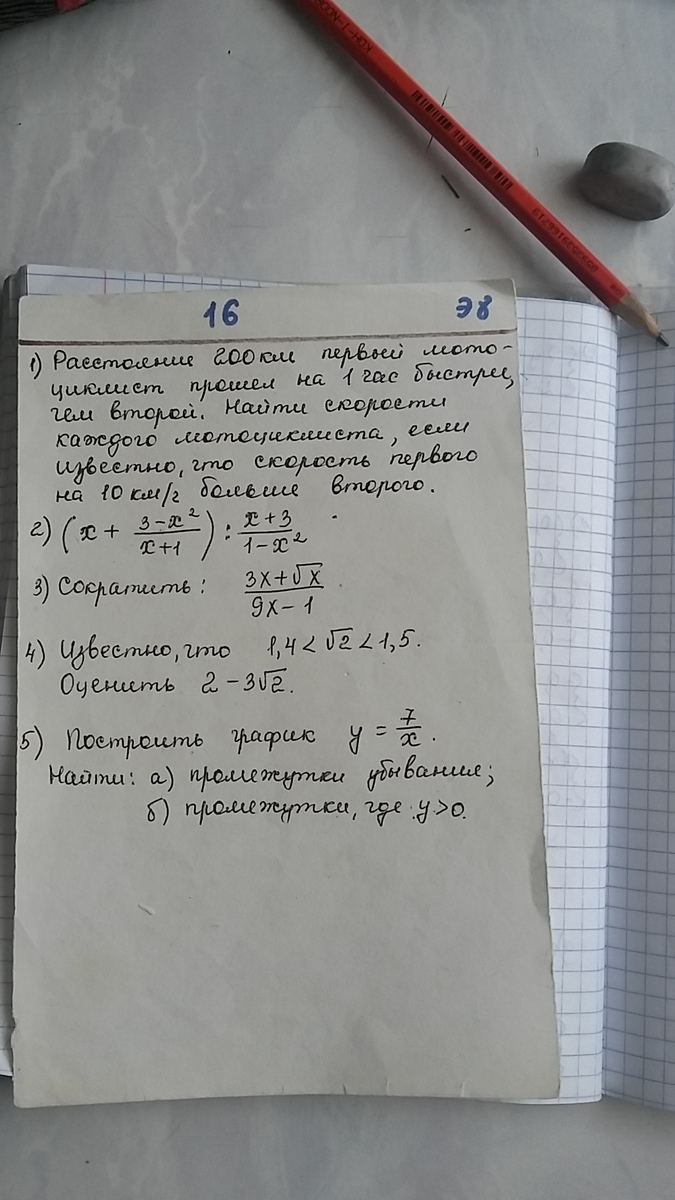 16 Э8
1) Расстояние 200 км первый мото-
циклист прошел на 1 час быстрее,
чем второй. Найти скорости
каждого мотоциклиста, если
известно, что скорость первого
на 10 км/ч больше второго.
2) (x + \frac{3-x^2}{x+1}) : \frac{x+3}{1-x^2}
3) Сократить: \frac{3x+\sqrt{x}}{9x-1}
4) Известно, что 1,4 < √2 < 1,5.
Оценить 2 - 3√2.
5) Построить график y = \frac{7}{x}.
Найти: а) промежутки убывания;
б) промежутки, где y>0.